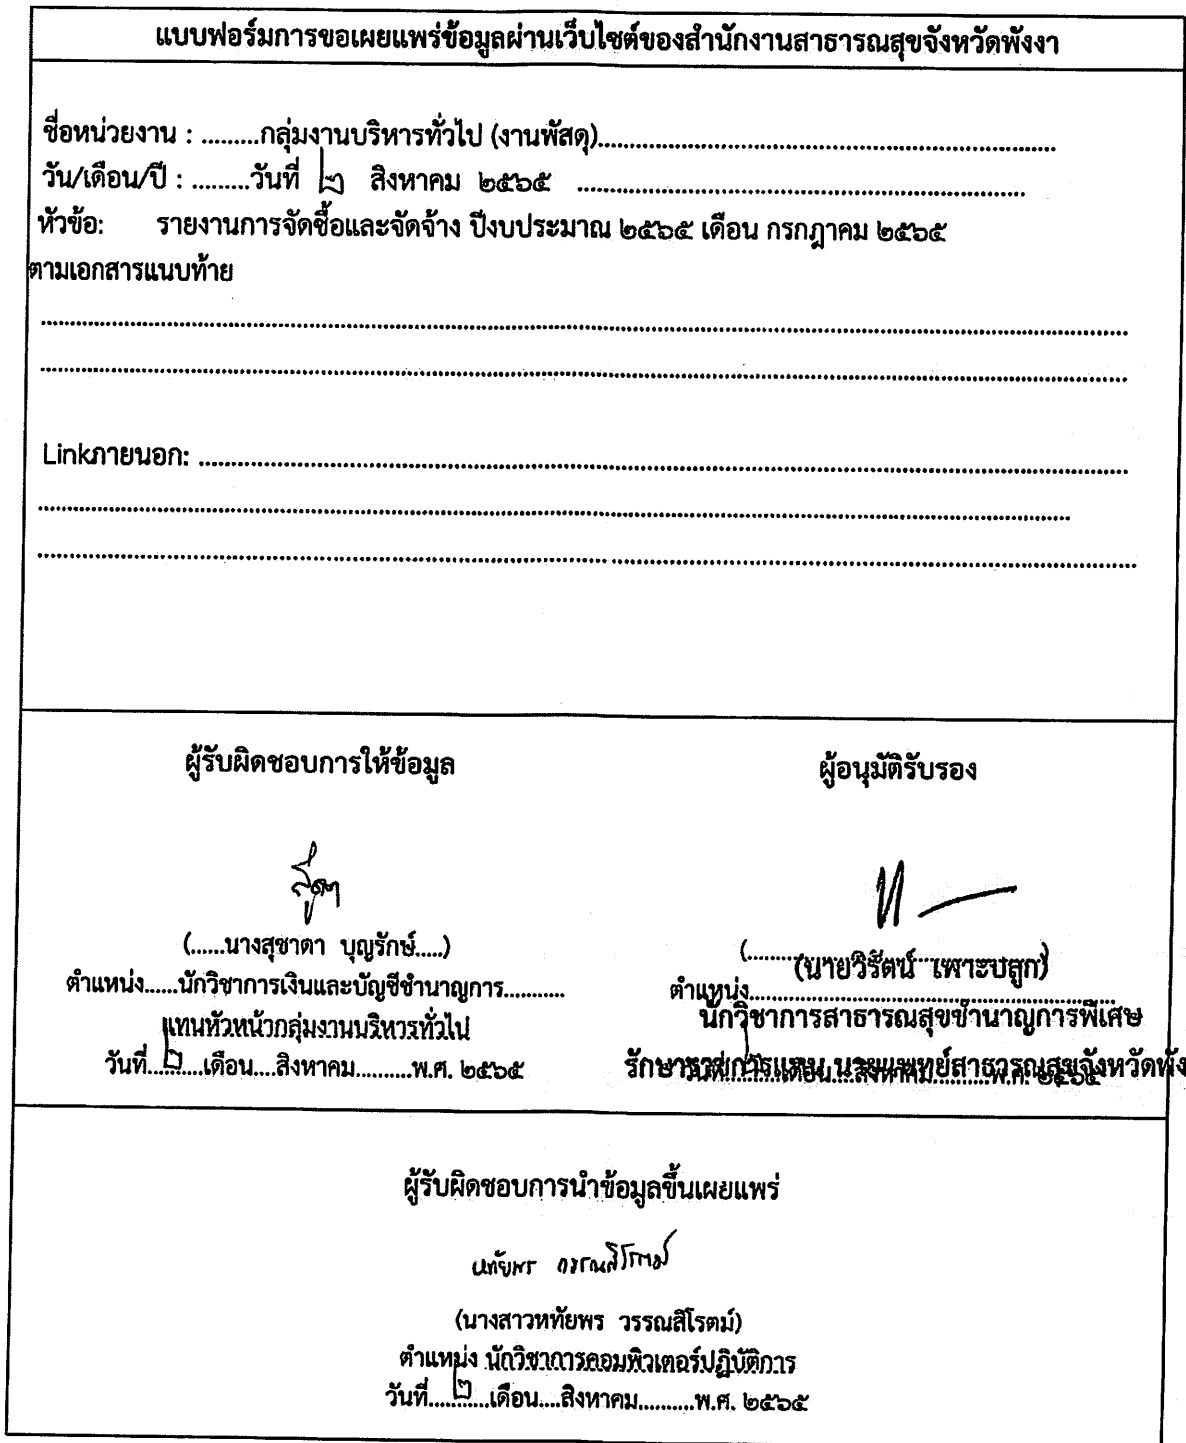 แบบฟอร์มการขอเผยแพร่ข้อมูลผ่านเว็บไซต์ของสำนักงานสาธารณสุขจังหวัดพังงา
ชื่อหน่วยงาน : .........กลุ่มงานบริหารทั่วไป (งานพัสดุ)......................................................................
วัน/เดือน/ปี : .........วันที่ ๒ สิงหาคม ๒๕๖๕ ....................................................................
หัวข้อ: รายงานการจัดซื้อและจัดจ้าง ปีงบประมาณ ๒๕๖๕ เดือน กรกฎาคม ๒๕๖๕
ตามเอกสารแนบท้าย
Linkภายนอก: ..............................................................................................................
ผู้รับผิดชอบการให้ข้อมูล
(......นางสุชาดา บุญรักษ์.....)
ตำแหน่ง......นักวิชาการเงินและบัญชีชำนาญการ...........
แทนหัวหน้ากลุ่มงานบริหารทั่วไป
วันที่....๒....เดือน....สิงหาคม..........พ.ศ. ๒๕๖๕
ผู้อนุมัติรับรอง
(นายวิรัตน์ เพาะปลูก)
ตำแหน่ง..........................................................
นักวิชาการสาธารณสุขชำนาญการพิเศษ
รักษาราชการแทน นายแพทย์สาธารณสุขจังหวัดพัง
วันที่ ๒ เดือน....สิงหาคม..........พ.ศ. ๒๕๖๕
ผู้รับผิดชอบการนำข้อมูลขึ้นเผยแพร่
หทัยพร วรรณสิโรตม์
(นางสาวหทัยพร วรรณสิโรตม์)
ตำแหน่ง นักวิชาการคอมพิวเตอร์ปฏิบัติการ
วันที่....๒....เดือน....สิงหาคม..........พ.ศ. ๒๕๖๕